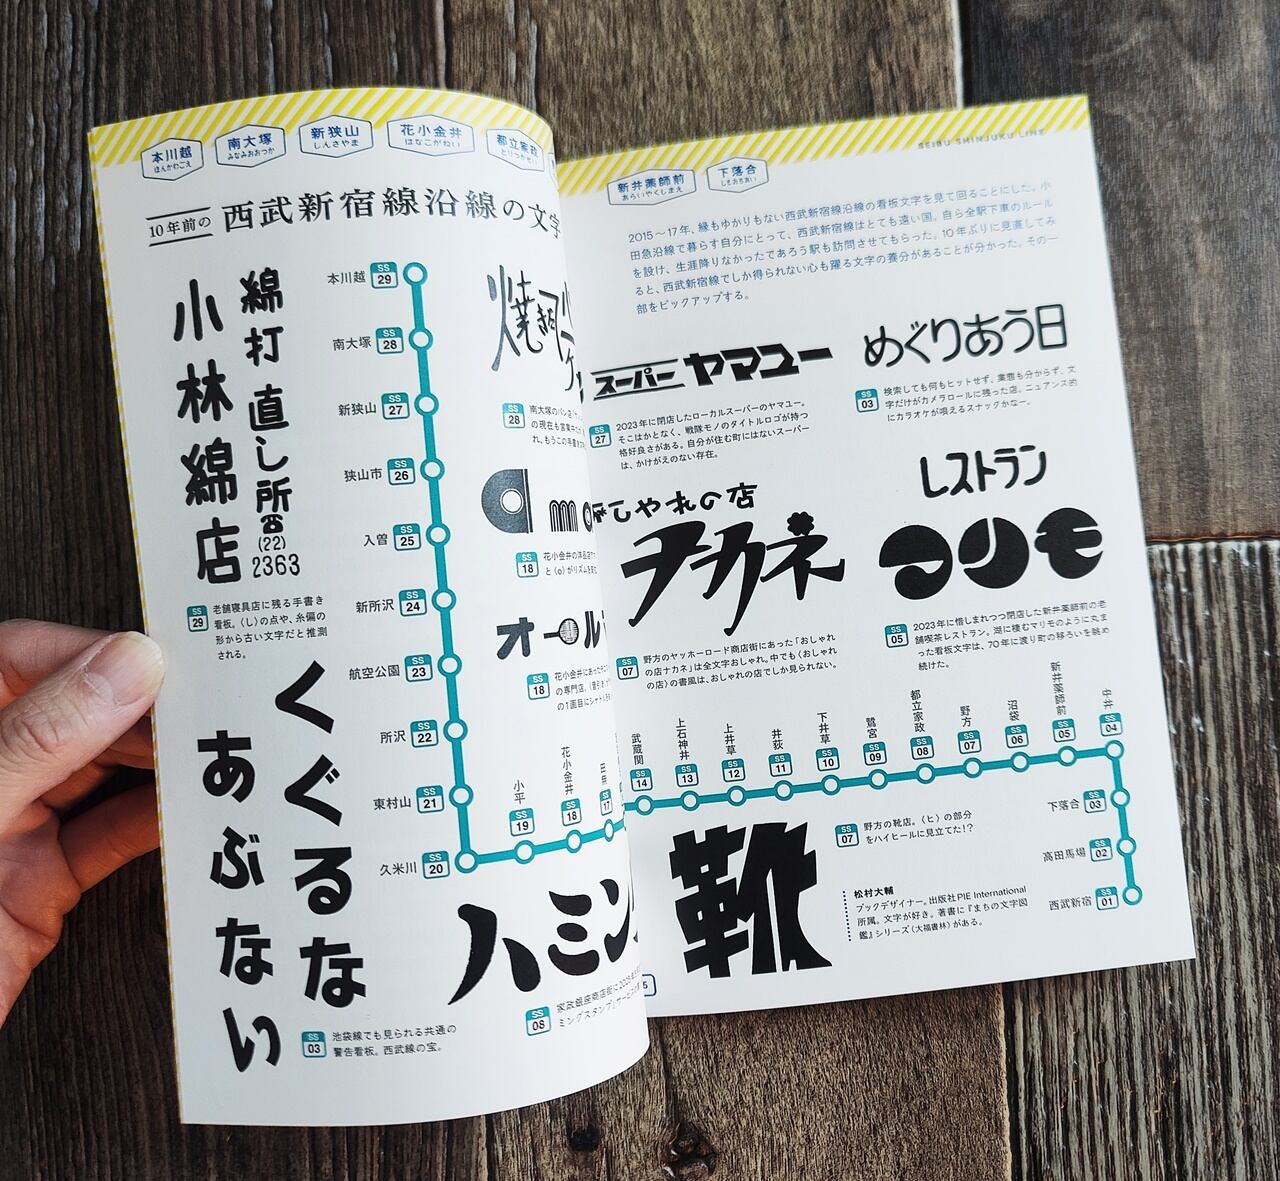 本川越
ほんかわごえ
南大塚
みなみおおつか
新狭山
しんさやま
花小金井
はなこがねい
都立家政
とりつかせい
10年前の
西武新宿線沿線の文字
綿打直し所
(22)
2363
小林綿店
SS
29
老舗寝具店に残る手書き
看板。〈し〉の点や、糸偏の
形から古い文字だと推測
される。
くぐるな
あぶない
SS
03
池袋線でも見られる共通の
警告看板。西武線の宝。
本川越 SS 29
南大塚 SS 28
新狭山 SS 27
狭山市 SS 26
入曽 SS 25
新所沢 SS 24
航空公園 SS 23
所沢 SS 22
東村山 SS 21
久米川 SS 20
小平 SS 19
花小金井 SS 18
SS 17
SS
28
南大塚のパン店
の現在も営業
れ、もうこの手書き
SS
18
花小金井の洋品店
と〈o〉がリズムを
オール
SS
18
花小金井にあった
の専門店。
の1画目に
ハミン
SS
08
家政銀座商店街に
ミングスタンプ」サービスの
SEIBU SHINJUKU LINE
新井薬師前
あらいやくしまえ
下落合
しもおちあい
2015〜17年、縁もゆかりもない西武新宿線沿線の看板文字を見て回ることにした。小
田急沿線で暮らす自分にとって、西武新宿線はとても遠い国。自ら全駅下車のルール
を設け、生涯降りなかったであろう駅も訪問させてもらった。10年ぶりに見直してみ
ると、西武新宿線でしか得られない心も躍る文字の養分があることが分かった。その一
部をピックアップする。
スーパー ヤマユー
SS
27
2023年に閉店したローカルスーパーのヤマユー。
そこはかとなく、戦隊モノのタイトルロゴが持つ
格好良さがある。自分が住む町にはないスーパー
は、かけがえのない存在。
めぐりあう日
SS
03
検索しても何もヒットせず、業態も分からず、文
字だけがカメラロールに残った店。ニュアンス的
にカラオケが唄えるスナックかなー。
おしゃれの店
ナカネ
SS
07
野方のヤッホーロード商店街にあった「おしゃれ
の店ナカネ」は全文字おしゃれ。中でも〈おしゃれ
の店〉の書風は、おしゃれの店でしか見られない。
レストラン
マリモ
SS
05
2023年に惜しまれつつ閉店した新井薬師前の老
舗喫茶レストラン。湖に棲むマリモのように丸ま
った看板文字は、70年に渡り町の移ろいを眺め
続けた。
武蔵関 SS 14
上石神井 SS 13
上井草 SS 12
井荻 SS 11
下井草 SS 10
鷺宮 SS 09
都立家政 SS 08
野方 SS 07
沼袋 SS 06
新井薬師前 SS 05
中井 SS 04
下落合 SS 03
高田馬場 SS 02
西武新宿 SS 01
靴
SS
07
野方の靴店。〈ヒ〉の部分
をハイヒールに見立てた!?
松村大輔
ブックデザイナー。出版社PIE International
所属。文字が好き。著書に『まちの文字図
鑑』シリーズ（大福書林）がある。
5